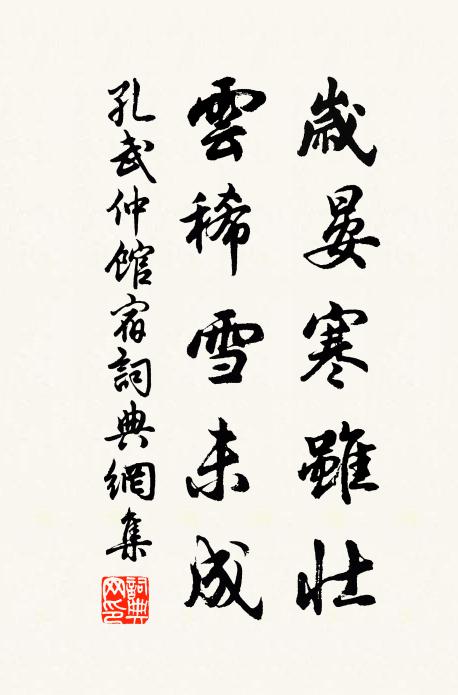 歲晏寒雖壯
雲稀雪未成
孔武仲館宿詞典網集
詞典網印